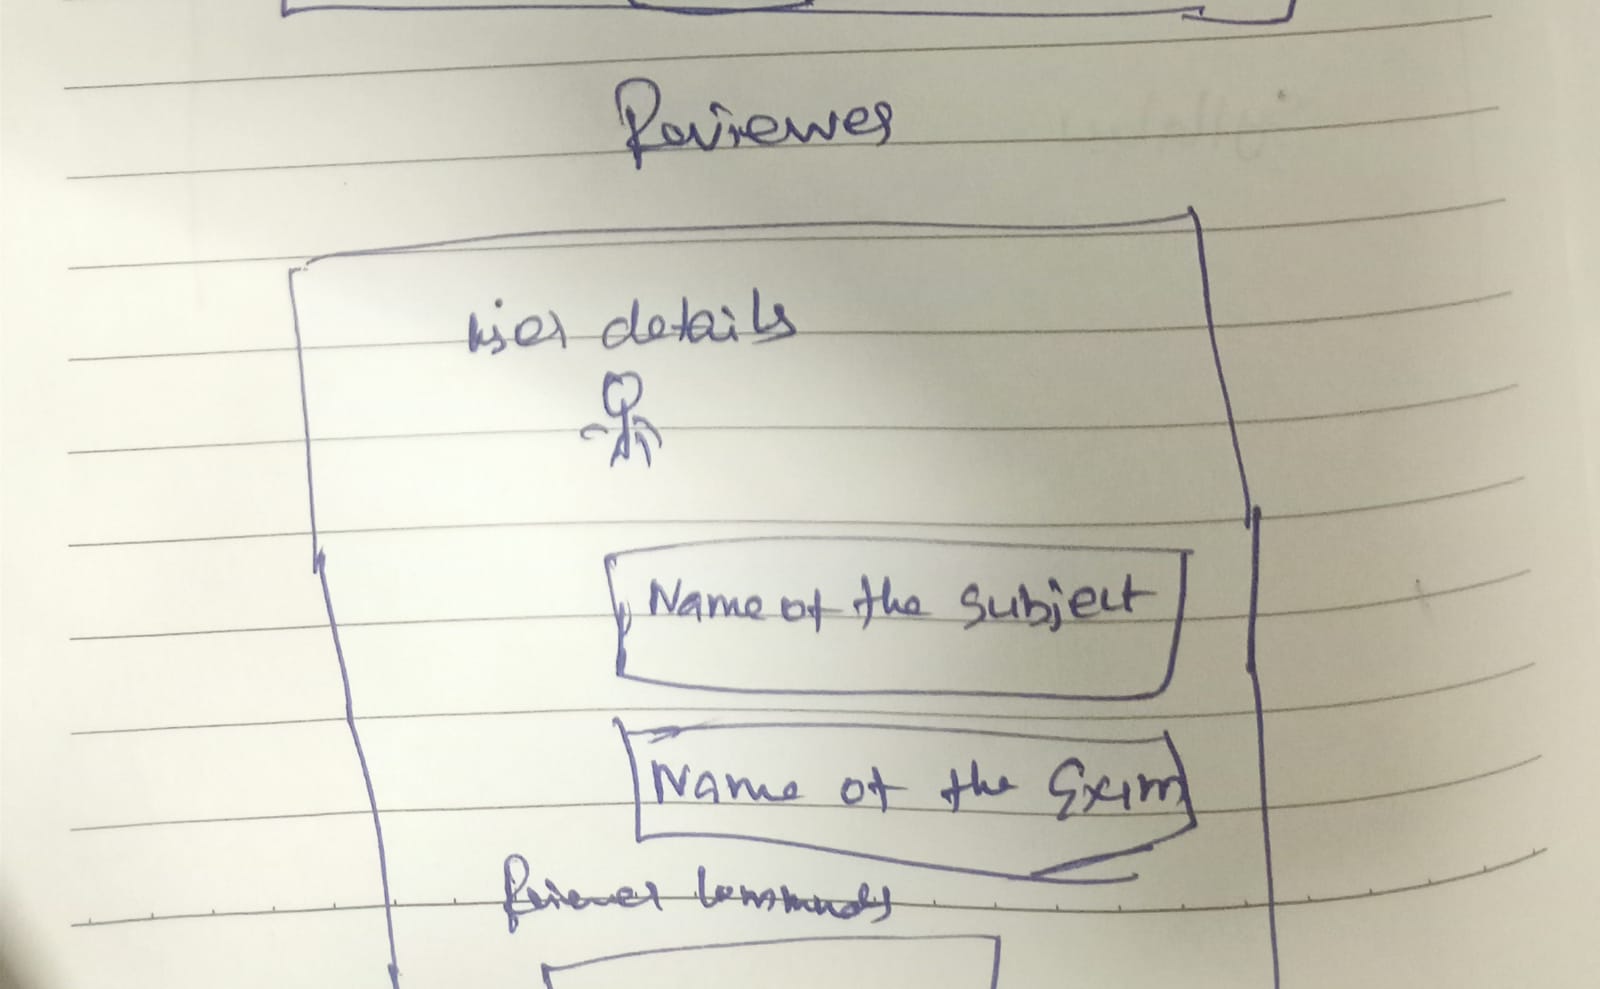 Reviewer
user details
Name of the Subject
Name of the Exam
Reviewer